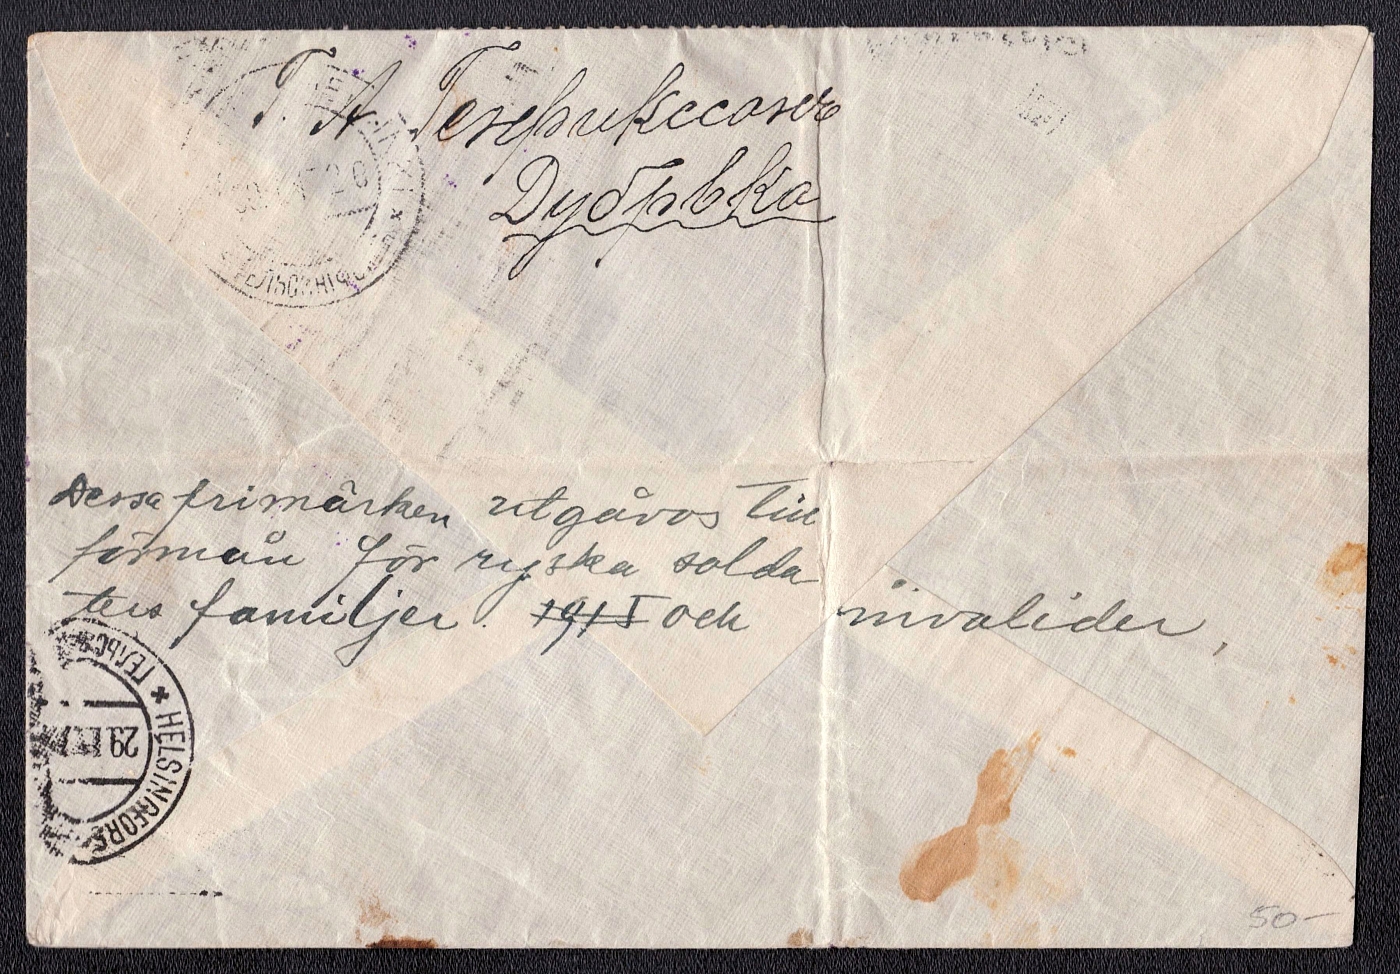 Г. А Генфикссонъ
Дубрѣвка
Dessa frimärken utgåvos till
förmån för ryska solda
ters familjer. 1915 och invalider,
ГЕЛЬСИНГФО
ГЕЛЬС * HELSINGFORS
29
50-